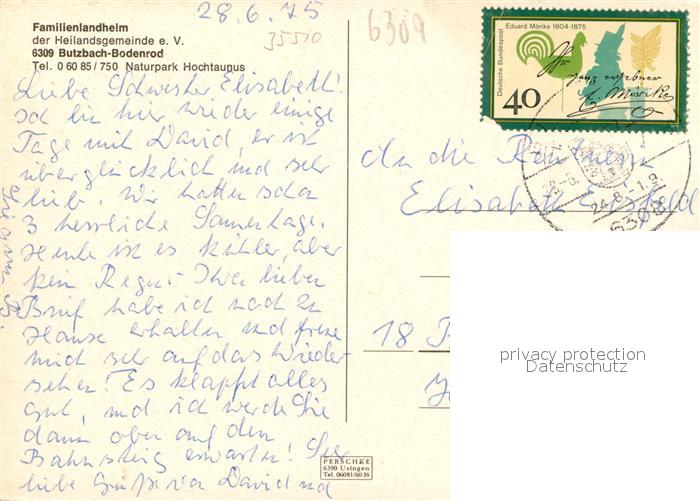 28.6.75
35510
6309
Familienlandheim
der Heilandsgemeinde e. V.
6309 Butzbach-Bodenrod
Tel. 0 60 85 / 750 Naturpark Hochtaunus
Deutsche Bundespost
Eduard Mörike 1804-1875
40
Ihr
ganz ergebner
E. Mörike
24.8.-1.9.
Liebe Schwester Elisabeth!
Ich bin hier wieder einige
Tage mit David, er ist
überglücklich und sehr
lieb. Wir hatten schon
3 herrliche Sonnentage.
Heute ist es kühler, aber
kein Regen. Ihren lieben
Brief habe ich noch zu
Hause erhalten und freue
mich sehr auf das Wieder-
sehen! Es klappt alles
gut, und ich werde Sie
dann oben auf dem
Bahnsteig erwarten! Sehr
liebe Grüße von David und
An die Rentnerin
Elisabeth
18
PERSCHKE
6390 Usingen
Tel. 06081/60 38
privacy protection
Datenschutz